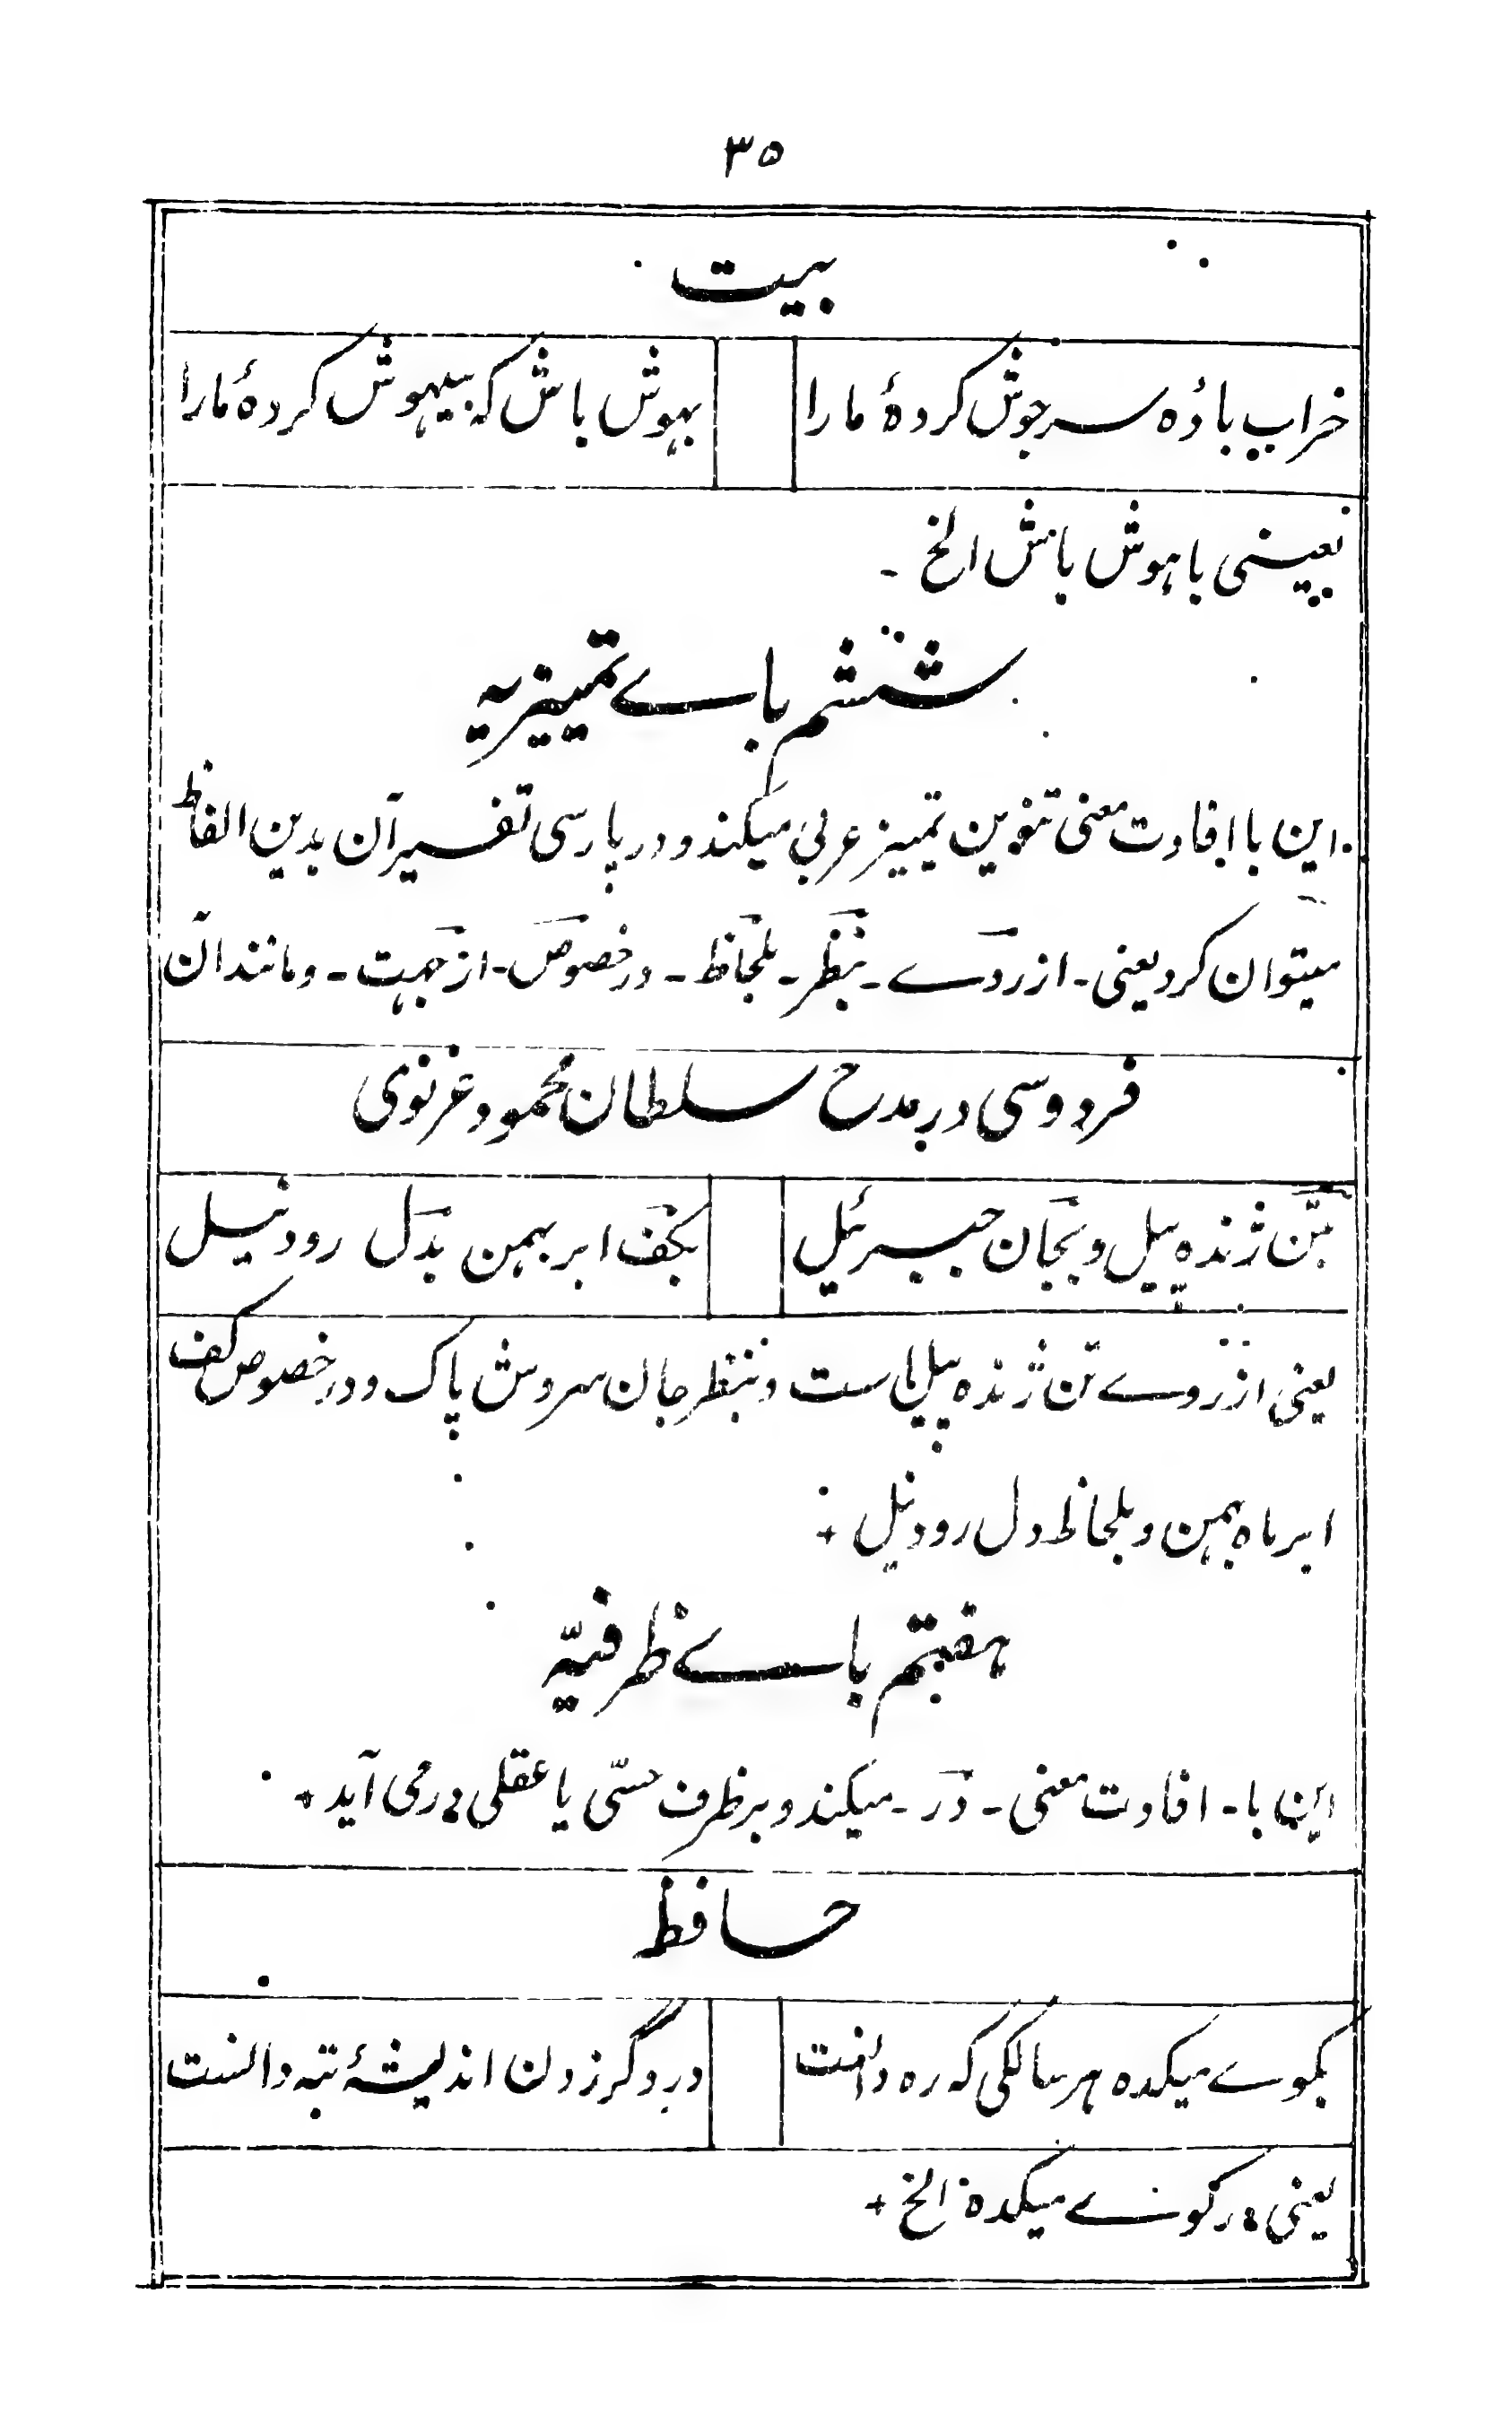 ۳۵
بیت
خراب بادهٔ سرجوش کردهٔ مارا
بهوش باش که بیهوش کردهٔ مارا
یعنی باهوش باش الخ ـ
ششم باے تمییزیه
این با افادت معنی تنوین تمییز عربی میکند و در پارسی تفسیر آن بدین الفاظ
میتوان کرد یعنی ـ از روے ـ بنظر ـ بلحاظ ـ در خصوص ـ از جهت ـ و مانند آن
فردوسی در مدح سلطان محمود غزنوی
بتن ژنده پیل و بجان جبرئیل
بکف ابر بهمن بدل رود نیل
یعنی از روے تن ژنده پیل است و بنظر جان سروش پاک و در خصوص کف
ابر ماه بهمن و بلحاظ دل رود نیل +
هفتم باے ظرفیّه
این با ـ افادت معنی ـ دَر ـ میکند و بر ظرف حسّی یا عقلی درمی آید +
حافظ
بکوے میکده هر سالکی که ره دانست
در دگر زدن اندیشهٔ تبه دانست
یعنی در کوے میکده الخ +